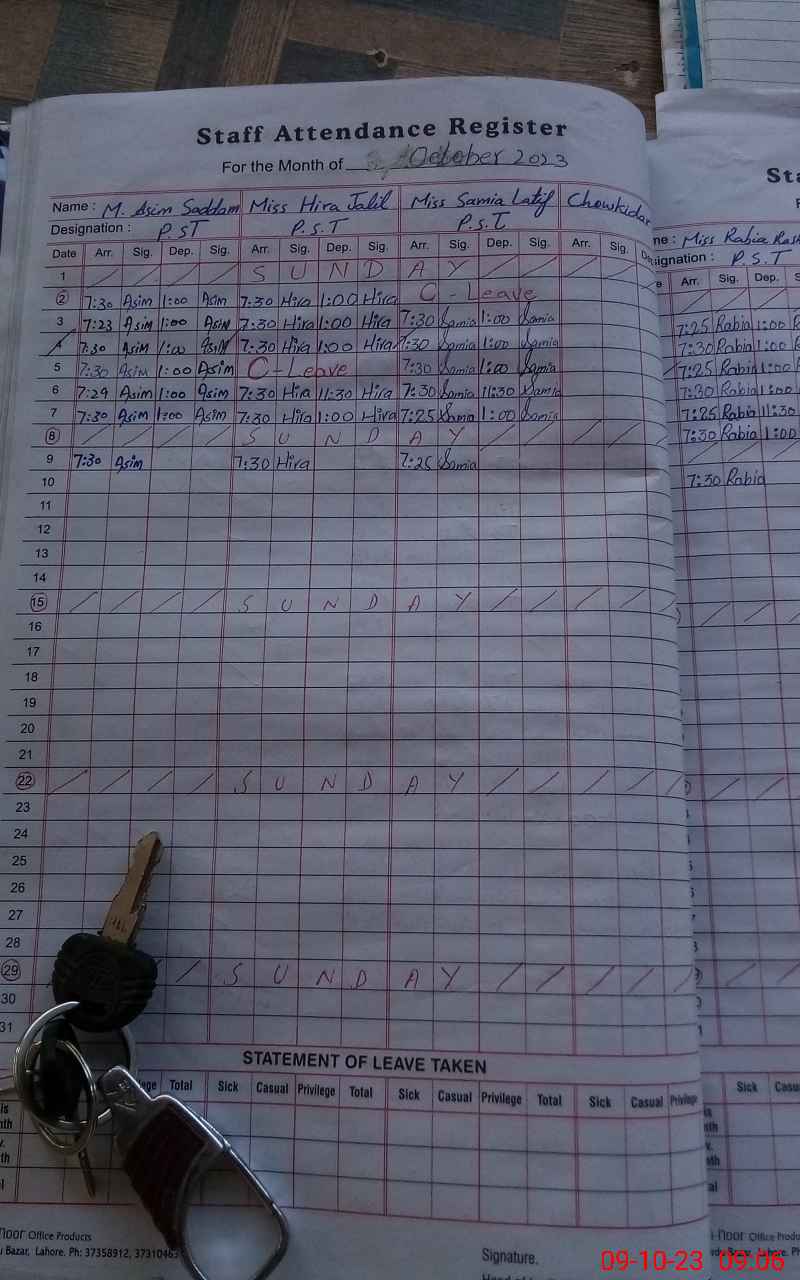 Staff Attendance Register
For the Month of October 2023
Name : M. Asim Saddam Miss Hira Jalil Miss Samia Latif Chowkidar
Designation : PST P.S.T P.S.T
Date Arr. Sig. Dep. Sig. Arr. Sig. Dep. Sig. Arr. Sig. Dep. Sig. Arr. Sig.
1 S U N D A Y
2 7:30 Asim 1:00 Asim 7:30 Hira 1:00 Hira C - Leave
3 7:23 Asim 1:00 Asim 7:30 Hira 1:00 Hira 7:30 Samia 1:00 Samia
4 7:30 Asim 1:00 Asim 7:30 Hira 1:00 Hira 7:30 Samia 1:00 Samia
5 7:30 Asim 1:00 Asim C - Leave 7:30 Samia 1:00 Samia
6 7:29 Asim 1:00 Asim 7:30 Hira 11:30 Hira 7:30 Samia 11:30 Samia
7 7:30 Asim 1:00 Asim 7:30 Hira 1:00 Hira 7:25 Samia 1:00 Samia
8 S U N D A Y
9 7:30 Asim 7:30 Hira 7:25 Samia
10
11
12
13
14
15 S U N D A Y
16
17
18
19
20
21
22 S U N D A Y
23
24
25
26
27
28
29 S U N D A Y
30
31
STATEMENT OF LEAVE TAKEN
Total Sick Casual Privilege Total Sick Casual Privilege Total Sick Casual Privilege
Office Products
Bazar, Lahore. Ph: 37358912, 3731046
Signature.
Miss Rabia
P.S.T
Arr. Sig. Dep.
7:25 Rabia 1:00
7:30 Rabia 1:00
7:25 Rabia 1:00
7:30 Rabia 1:00
7:25 Rabia 11:30
7:30 Rabia 1:00
7:30 Rabia
Sick
Office
09-10-23 09:06